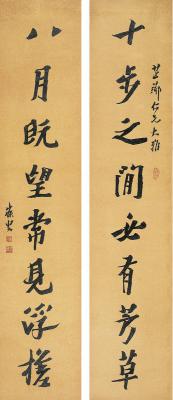 十步之間必有芳草
仁兄大雅
八月既望常見浮槎